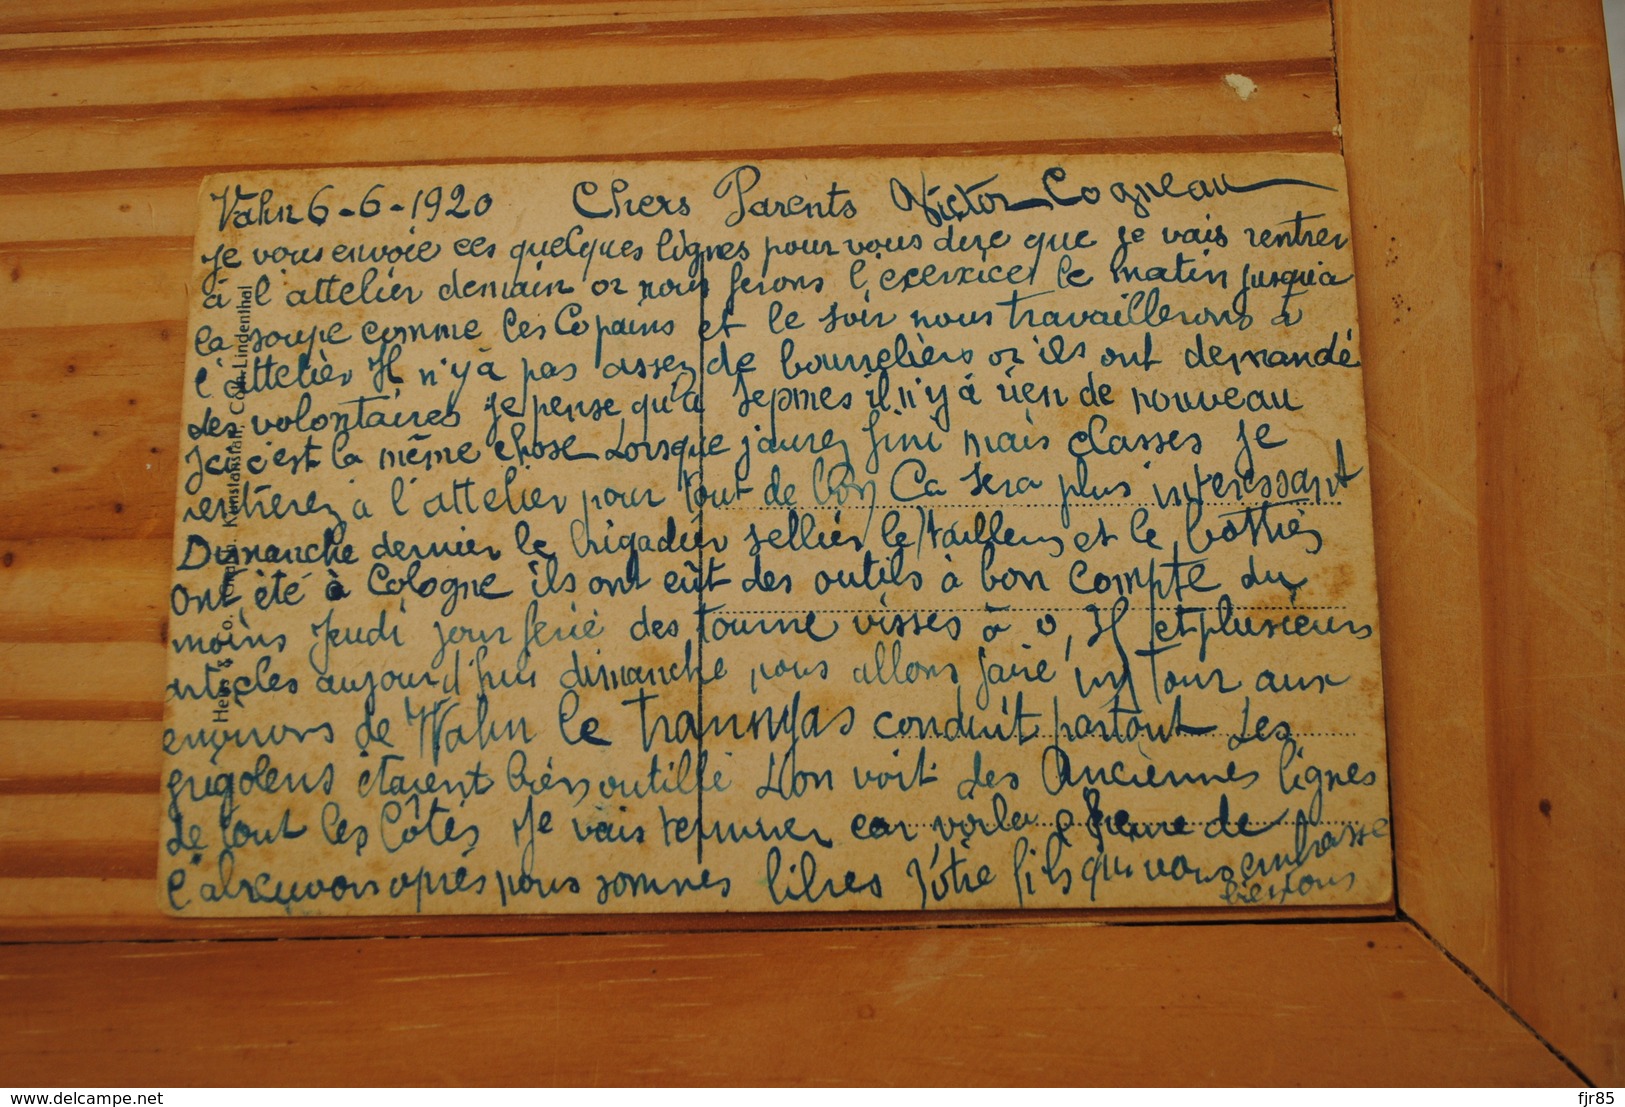 Vahn 6-6-1920 Chers Parents Victor Cogneau
je vous envoie ces quelques lignes pour vous dire que je vais rentrer
à l'attelier demain or nous ferons l'exerxice le matin jusqu'a
la soupe comme les Copains et le soir nous travaillerons à
l'attelier Il n'y à pas assez de bourreliers or ils ont demandé
des volontaires je pense qu'à Sepmes il n'y à rien de nouveau
Ici c'est la même chose Lorsque j'aurez fini mais classes je
rentrerez à l'attelier pour tout de bon Ca sera plus interessant
Dimanche dernier le brigadier sellier le tailleur et le bottier
Ont été à Cologne ils ont eût des outils à bon compte du
moins Jeudi jour ferié des tourne visses à 0, et plusieurs
articles aujourd'hui dimanche nous allons faire un tour aux
environs de Wahn le tranmyas conduit partout Les
étaient bien outillé L'on voit des Anciennes lignes
de tout les Côtés Je vais terminer car voila l'heure de
l'abreuvoir après nous sommes libres Vôtre fils qui vous embrasse
bien tous
Konstanstant, Cöln-Lindenthal
delcampe.net
fjr85